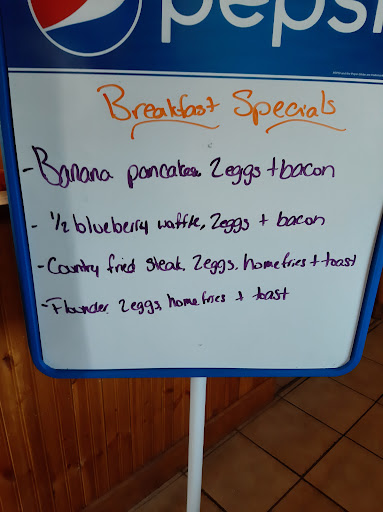 pepsi
Breakfast Specials
-Banana pancakes, 2eggs + bacon
- 1/2 blueberry waffle, 2eggs + bacon
-Country fried steak, 2eggs, homefries + toast
-Flounder, 2eggs, homefries + toast